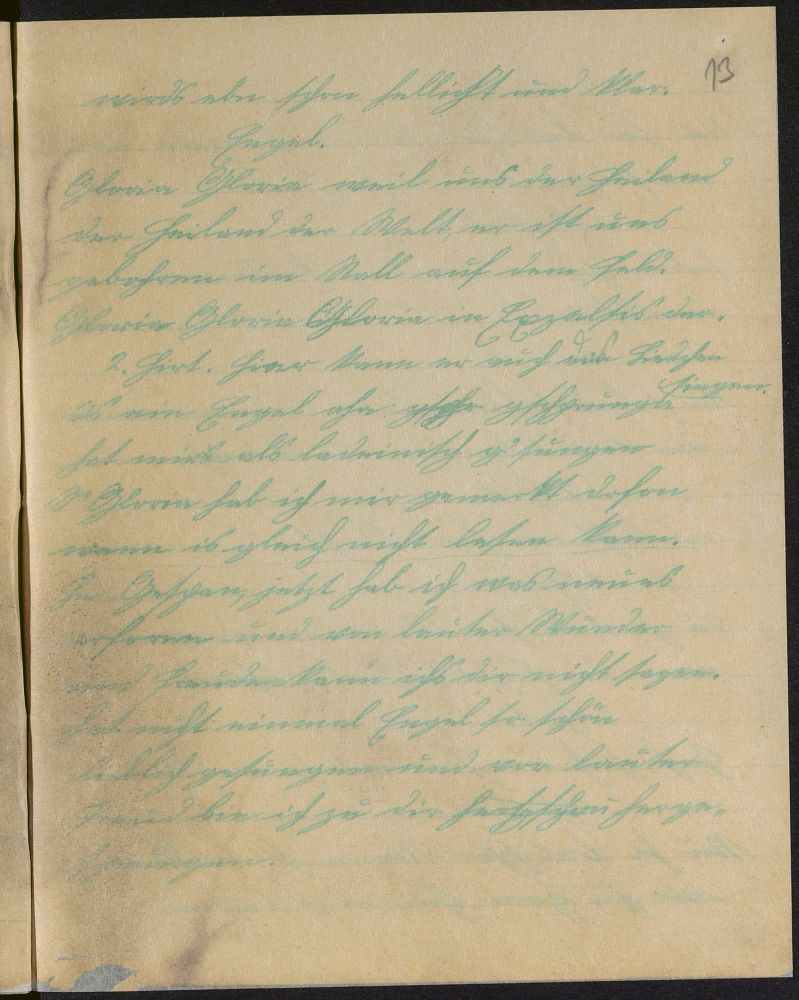 13
wirds abe schon hellicht und klar.
Engel.
Gloria Gloria weil uns der Heiland
der Heiland der Welt, er ist uns
gebohren im Stall auf dem Feld.
Gloria Gloria Gloria in Exzelsis deo.
2. Hirt. Hier kann er auch das Liedchen
singen.
Is am Engel aha gschprunga
hat mirs als ladeinisch g'sungen
S' Gloria hab ich mir gemerkt dafon
wann is gleich nicht lesen kann.
He Gespan, jetzt hab ich was neues
erfaren und von lauter Wunder
und Freude kann ichs dir nicht sagen.
hat nicht einmal Engel so schön
lieblich gesungen und vor lauter
Freud bin ich zu dir herge-
sprungen.